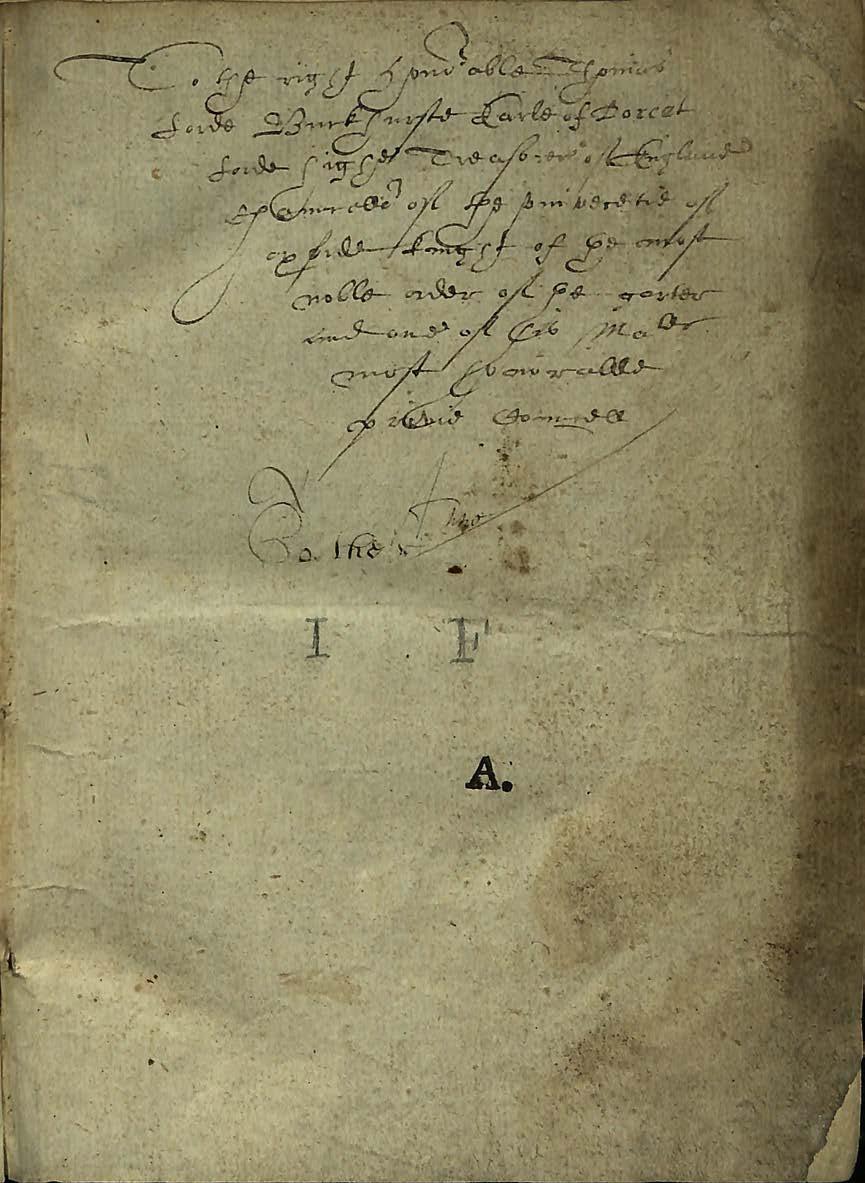 To the right honorable Thomas
Lorde Buckhurste Earle of Dorcet
Lorde highe Treasorer of England
Chauncellor of the universetie of
oxforde knight of the most
noble order of the garter
and one of his Maties
most honorable
privie Counsell
To the
I F
A.